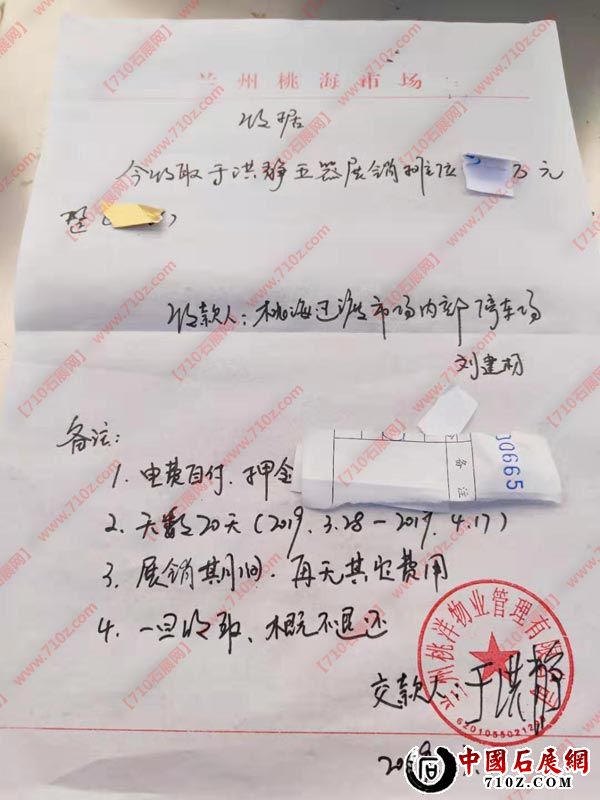 兰州桃海市场
收据
今收取于洪静玉器展销摊位 万元
整( )
收款人:桃海过渡市场内部停车场
刘建材
备注:
1. 电费自付.押金
备注
00665
2. 天数20天(2019.3.28-2019.4.17)
3. 展销期间.再无其它费用
4. 一旦收取、概不退还
兰州桃洋物业管理有限公司
交款人:于洪静
2019
中國石展網
710Z.COM
【710石展网】www.710z.com